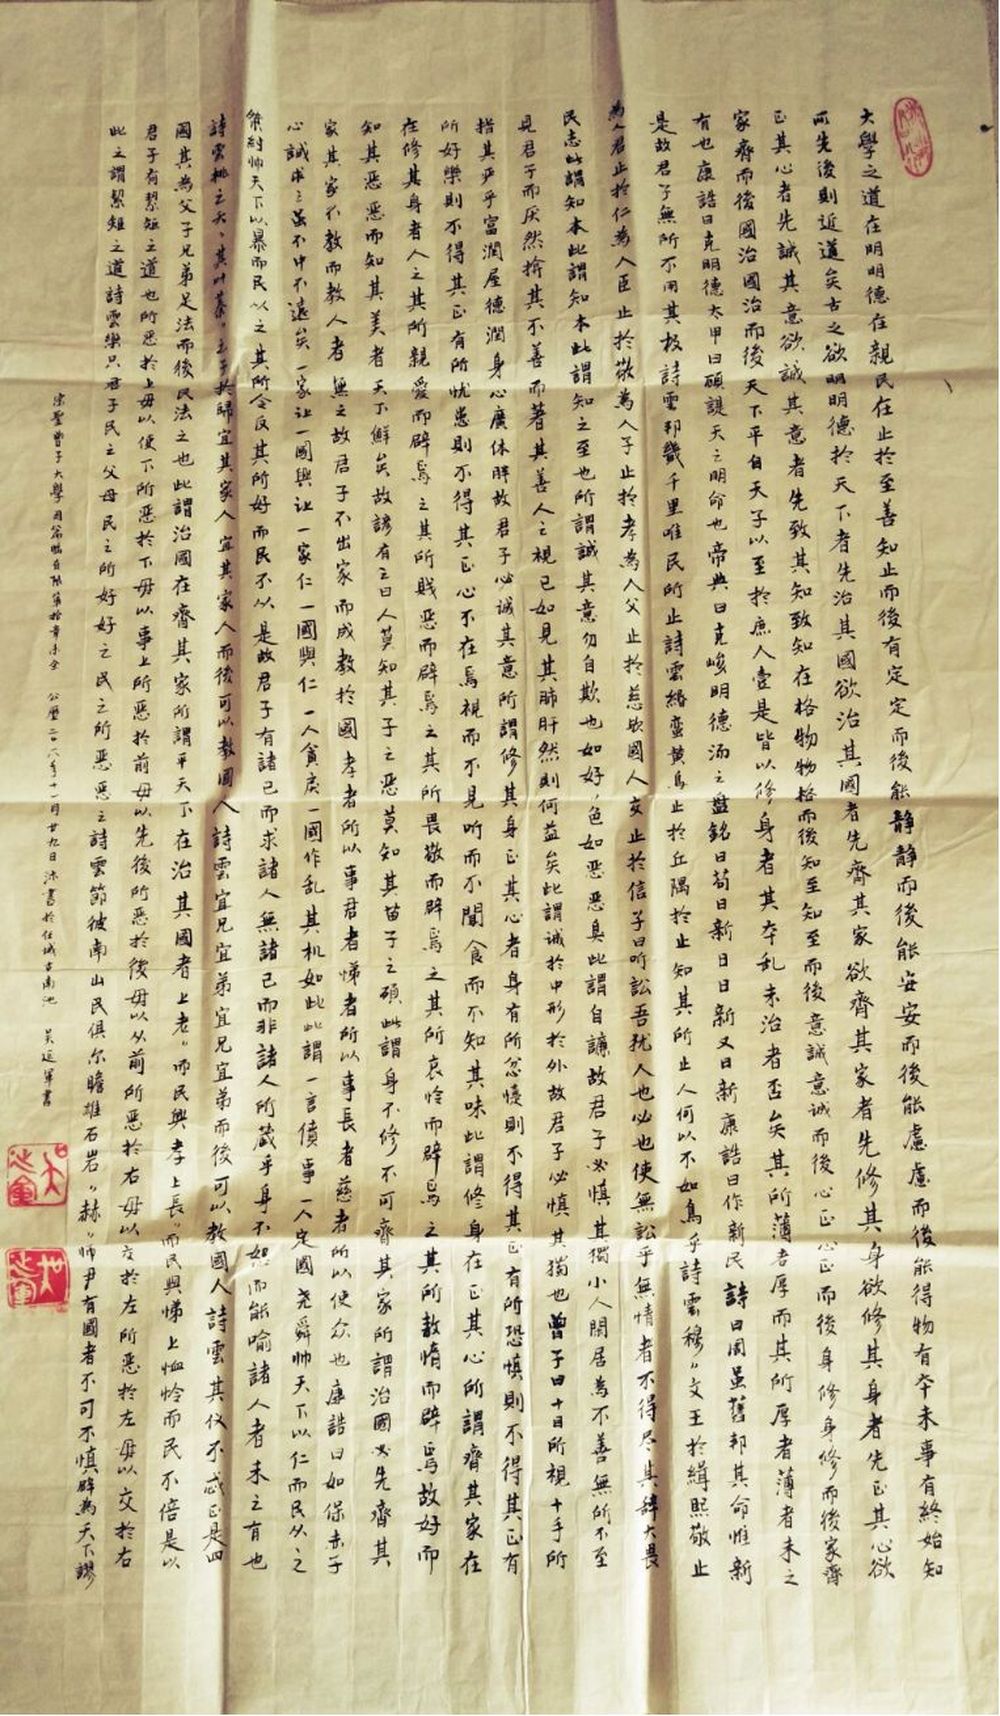 大學之道在明明德在親民在止於至善知止而後有定定而後能靜靜而後能安安而後能慮慮而後能得物有夲末事有終始知
所先後則近道矣古之欲明明德於天下者先治其國欲治其國者先齊其家欲齊其家者先修其身欲修其身者先正其心欲
正其心者先誠其意欲誠其意者先致其知致知在格物物格而後知至知至而後意誠意誠而後心正心正而後身修身修而後家齊
家齊而後國治國治而後天下平自天子以至於庶人壹是皆以修身者其夲乱末治者否矣其所薄者厚而其所厚者薄者未之
有也康誥曰克明德太甲曰顧諟天之明命也帝典曰克峻明德湯之盤銘曰苟日新日日新又日新康誥曰作新民詩曰周虽舊邦其命惟新
是故君子無所不用其极詩雲邦畿千里唯民所止詩雲緡蛮黄鳥止於丘隅於止知其所止人何以不如鳥乎詩雲穆〃文王於緝熙敬止
為人君止於仁為人臣止於敬為人子止於孝為人父止於慈與國人交止於信子曰听訟吾犹人也必也使無訟乎無情者不得尽其辞大畏
民志此謂知本此謂知本此謂知之至也所謂誠其意勿自欺也如好色如恶恶臭此謂自謙故君子必慎其獨小人閒居為不善無所不至
見君子而厌然揜其不善而著其善人之視已如見其肺肝然則何益矣此謂誠於中形於外故君子必慎其獨也曾子曰十目所視十手所
指其严乎富潤屋德潤身心廣体胖故君子必诚其意所謂修其身正其心者身有所忿懥則不得其正有所恐慎則不得其正有
所好樂則不得其正有所忧患則不得其正心不在焉視而不見听而不聞食而不知其味此謂修身在正其心所謂齊其家在
在修其身者人之其所親愛而辟焉之其所贱恶而辟焉之其所畏敬而辟焉之其所哀怜而辟焉之其所敖惰而辟焉故好而
知其恶恶而知其美者天下鮮矣故諺有之曰人莫知其子之恶莫知其苗子之硕此謂身不修不可齊其家所謂治國必先齊其
家其家不教而教人者無之故君子不出家而成教於國孝者所以事君者悌者所以事長者慈者所以使众也康誥曰如保赤子
心誠求之虽不中不遠矣一家让一國興让一家仁一國興仁一人貪戾一國作乱其机如此此謂一言僨事一人定國尧舜帅天下以仁而民从之
桀紂帅天下以暴而民从之其所令反其所好而民不从是故君子有諸己而求諸人無諸己而非諸人所蔵乎身不恕而能喻諸人者未之有也
詩雲桃之夭〃其叶蓁〃之子於歸宜其家人宜其家人而後可以教國人詩雲宜兄宜弟宜兄宜弟而後可以教國人詩雲其仪不忒正是四
國其為父子兄弟足法而後民法之也此謂治國在齊其家所謂平天下在治其國者上老〃而民興孝上長〃而民興悌上恤怜而民不倍是以
君子有絜矩之道也所恶於上毋以使下所恶於下毋以事上所恶於前毋以先後所恶於後毋以从前所恶於右毋以交於左所恶於左毋以交於右
此之謂絜矩之道詩雲樂只君子民之父母民之所好好之民之所恶恶之詩雲節彼南山民俱尔瞻維石岩〃赫〃师尹有國者不可不慎辟為天下謬
宗聖曾子大學 公歷二〇 年十一月廿九日沐書於任城古南池 吴延軍書